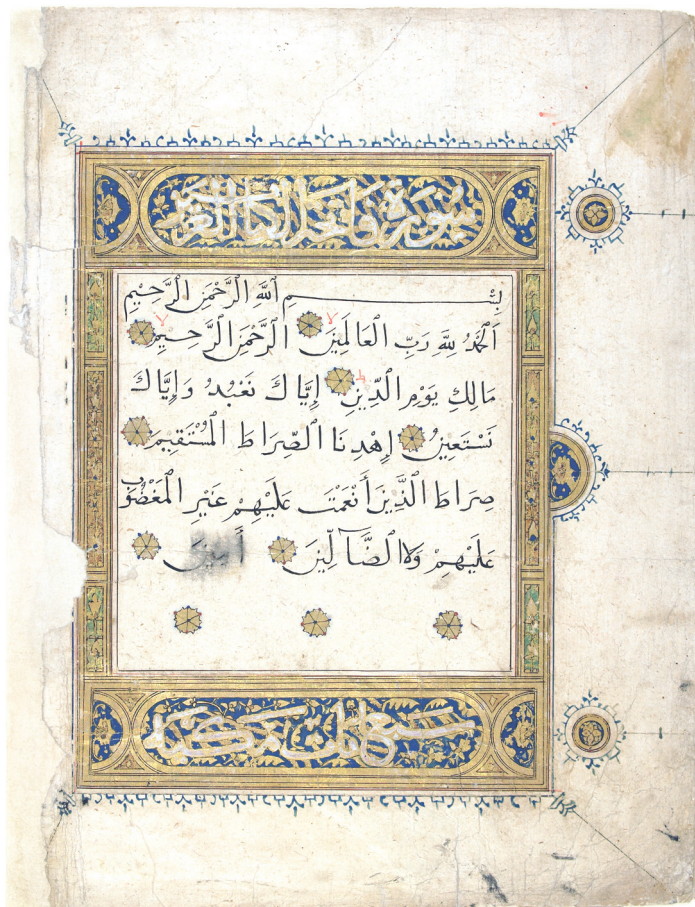 سورة فاتحة الكتاب العزيز
بِسْمِ اللَّهِ الرَّحْمَٰنِ الرَّحِيمِ
اَلْحَمْدُ لِلَّهِ رَبِّ الْعَالَمِينَ الرَّحْمَٰنِ الرَّحِيمِ
مَالِكِ يَوْمِ الدِّينِ إِيَّاكَ نَعْبُدُ وَإِيَّاكَ
نَسْتَعِينُ إِهْدِنَا الصِّرَاطَ الْمُسْتَقِيمَ
صِرَاطَ الَّذِينَ أَنْعَمْتَ عَلَيْهِمْ غَيْرِ الْمَغْضُوبِ
عَلَيْهِمْ وَلَا الضَّآلِّينَ أَمِينَ
سبع آيات مكية